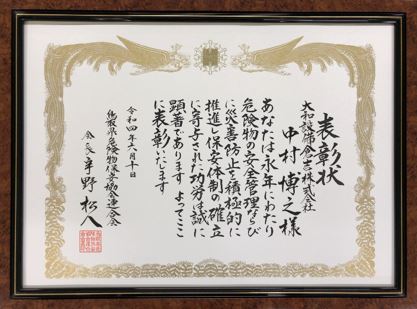 表彰状
大和設備工業株式会社
中村博之様
あなたは永年にわたり
危険物の安全管理ならび
に災害防止を積極的に
推進し保安体制の確立
に寄与された功労は誠に
顕著であります よってここ
に表彰いたします
令和四年六月十日
鳥取県危険物保安協会連合会
会長 宇野松人